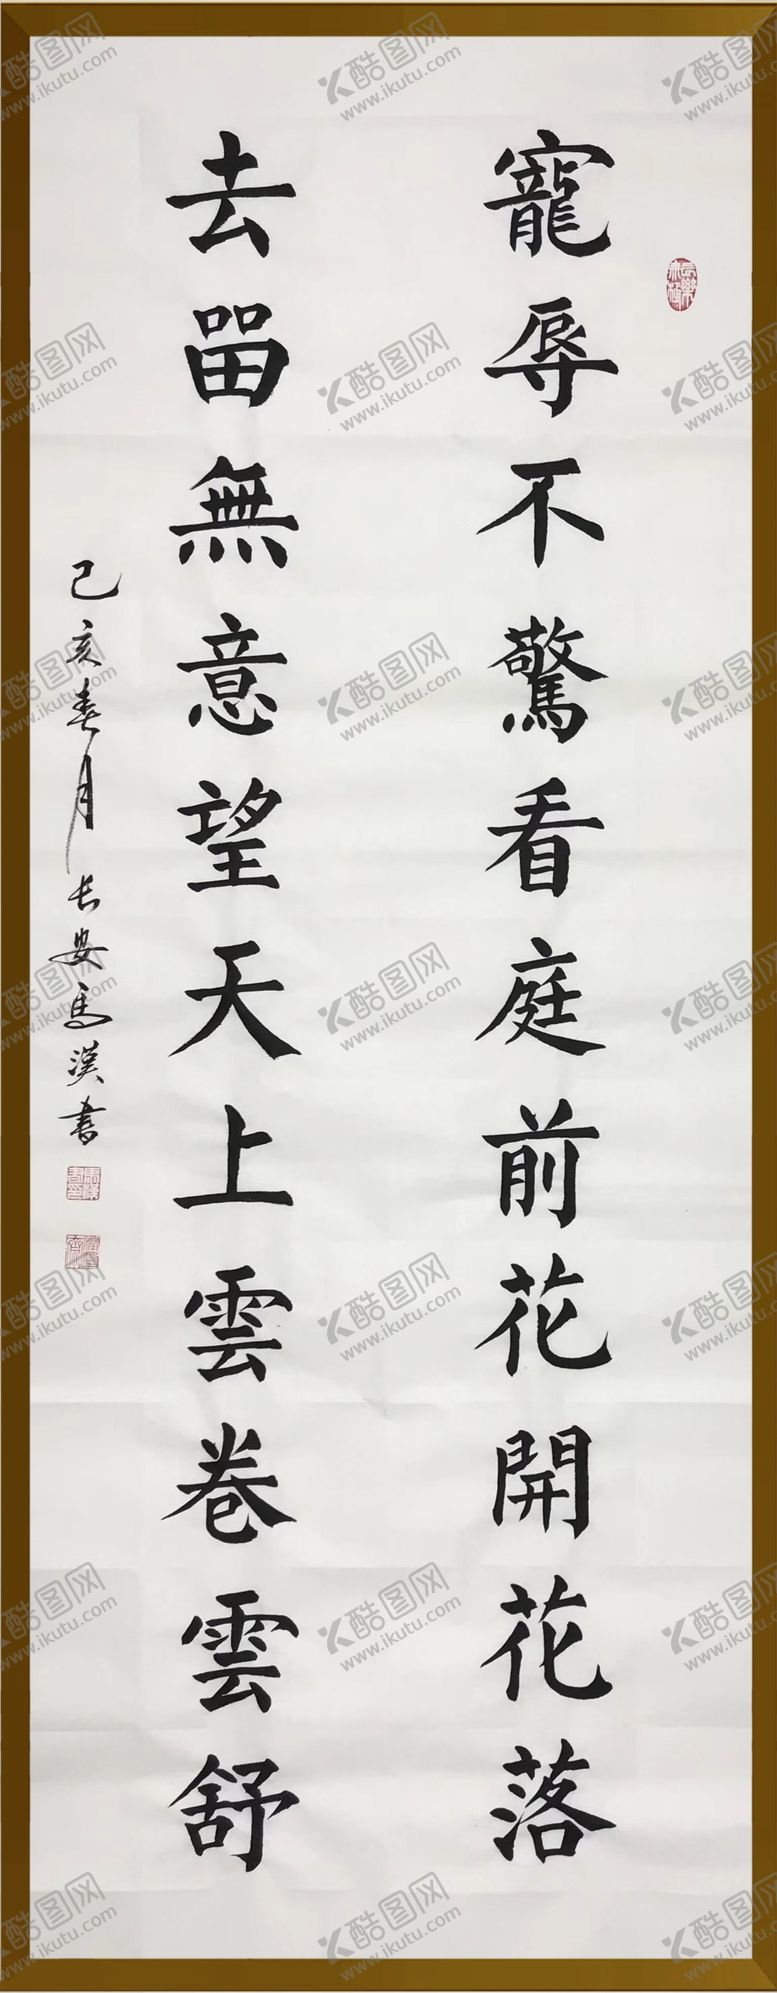 寵辱不驚看庭前花開花落
去畱無意望天上雲卷雲舒
己亥春月长安馬漢書
酷图网
www.ikutu.com